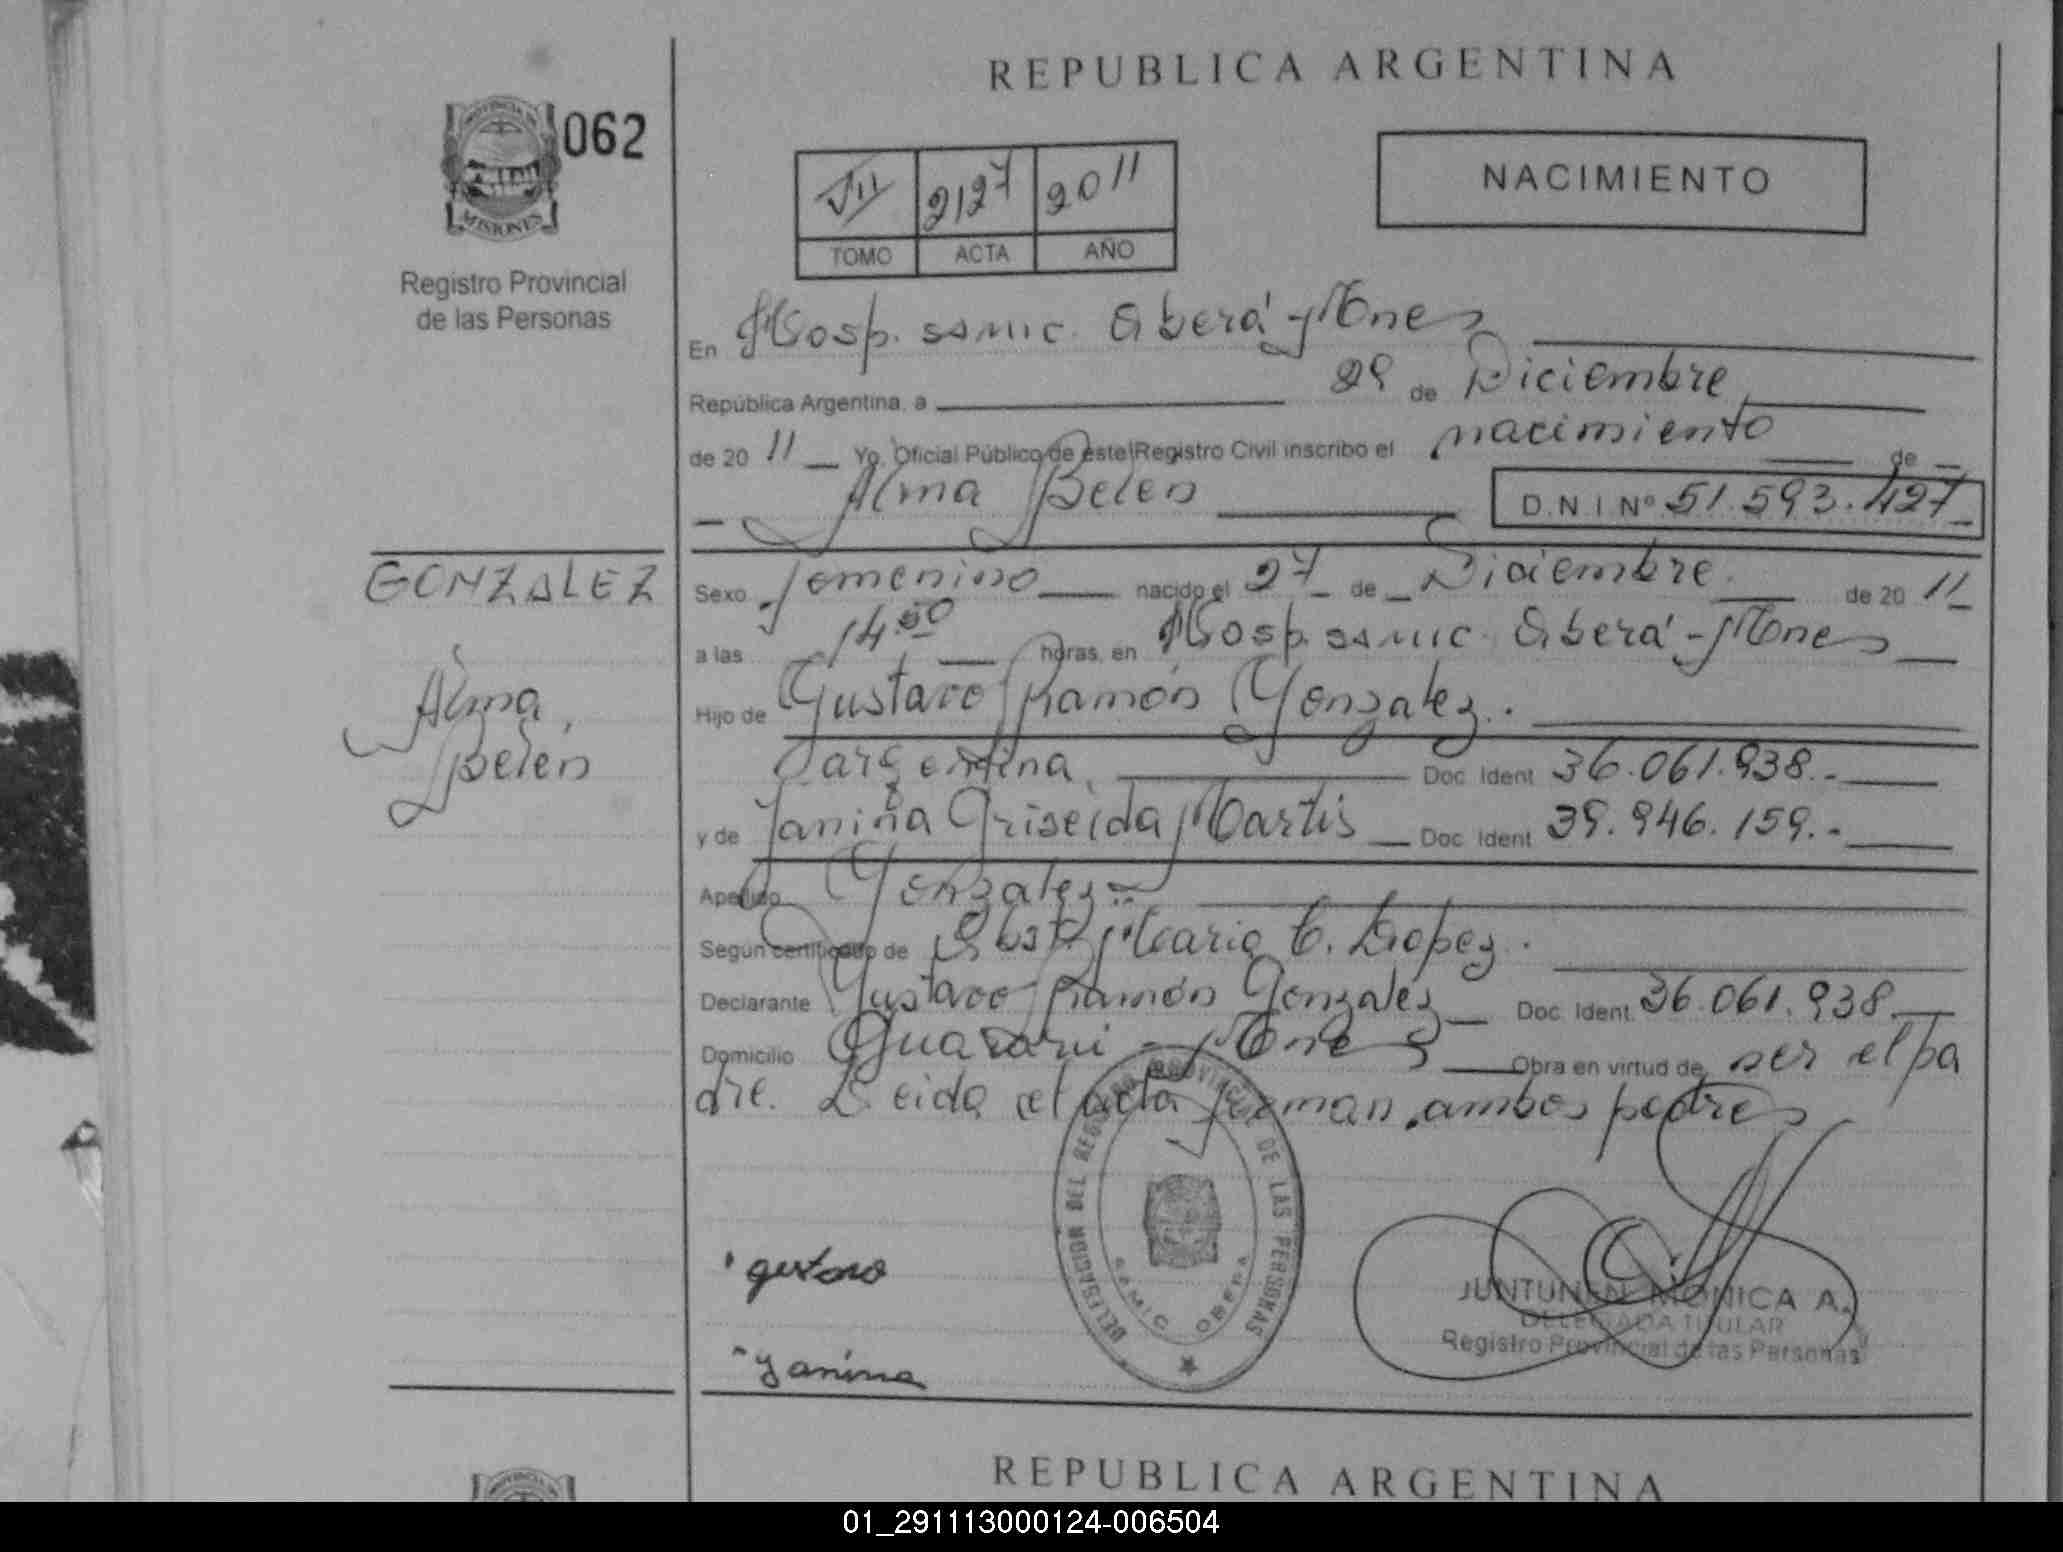 REPUBLICA ARGENTINA
PROVINCIA DE
MISIONES
062
Registro Provincial
de las Personas
VII 2127 2011
TOMO ACTA AÑO
NACIMIENTO
En Hosp. samic. Oberá - Mnes
República Argentina, a 29 de Diciembre
de 20 11 Yo, Oficial Público de este Registro Civil inscribo el nacimiento de
Alma Belen
D.N.I Nº 51.593.427
GONZALEZ
Alma
Belén
Sexo femenino nacido el 27 de Diciembre de 20 11
a las 14.50 horas, en Hosp. samic. Oberá - Mnes
Hijo de Gustavo Ramón Gonzalez.
argentina Doc. Ident 36.061.938.-
y de Yanina Griselda Martis Doc. Ident 39.946.159.-
Apellido Gonzalez
Según certificado de Obst. Maria C. Lopez.
Declarante Gustavo Ramón Gonzalez Doc. Ident. 36.061.938
Domicilio Guarani - Mnes Obra en virtud de ser el pa
dre. Leida el acta firman ambos padres
gustavo
Yanina
DELEGACION DEL REGISTRO PROVINCIAL DE LAS PERSONAS
SAMIC OBERA
JUNTUNEN MONICA A.
DELEGADA TITULAR
Registro Provincial de las Personas
REPUBLICA ARGENTINA
01_291113000124-006504